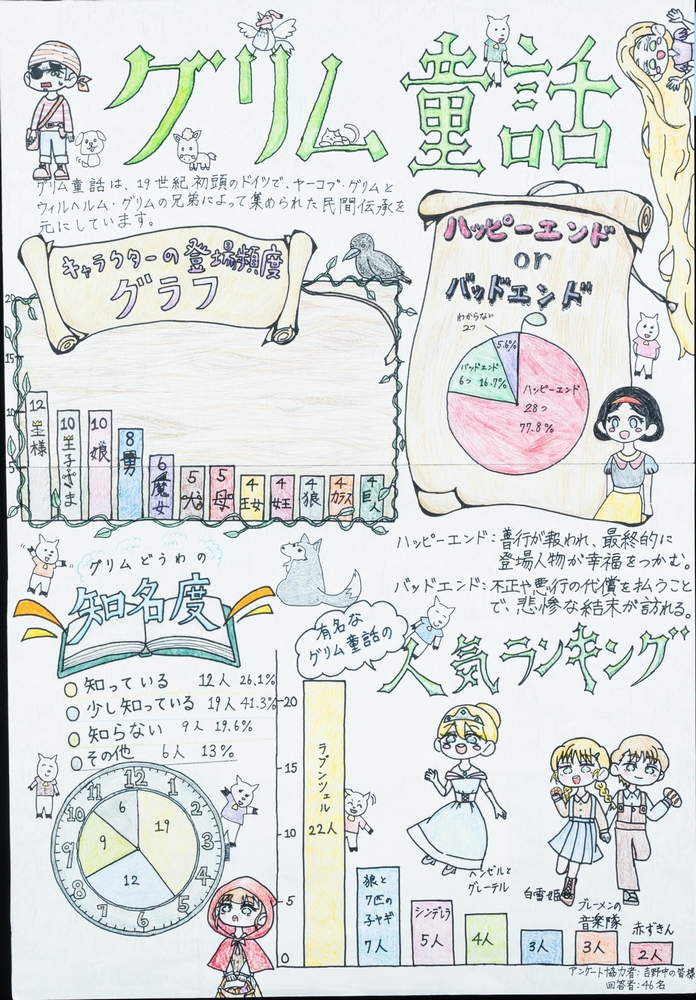 グリム童話
グリム童話は、19世紀初頭のドイツで、ヤーコプ・グリムと
ウィルヘルム・グリムの兄弟によって集められた民間伝承を
元にしています。
キャラクターの登場頻度
グラフ
20
15
10
5
12
王様
10
王子さま
10
娘
8
男
6
魔女
5
犬
5
母
4
王女
4
女王
4
狼
4
カラス
4
巨人
ハッピーエンド
or
バッドエンド
わからない
2つ
5.6%
バッドエンド
6つ 16.7%
ハッピーエンド
28つ
77.8%
ハッピーエンド：善行が報われ、最終的に
登場人物が幸福をつかむ。
バッドエンド：不正や悪行の代償を払うこと
で、悲惨な結末が訪れる。
グリムどうわの
知名度
知っている 12人 26.1%
少し知っている 19人 41.3%
知らない 9人 19.6%
その他 6人 13%
12
1
2
3
4
5
6
7
8
9
10
11
6
19
9
12
有名な
グリム童話の
人気ランキング
20
15
10
5
0
ラプンツェル
22人
狼と
7匹の
子ヤギ
7人
シンデレラ
5人
ヘンゼルと
グレーテル
4人
白雪姫
3人
ブレーメンの
音楽隊
3人
赤ずきん
2人
アンケート協力者：吉野中の皆様
回答者：46名